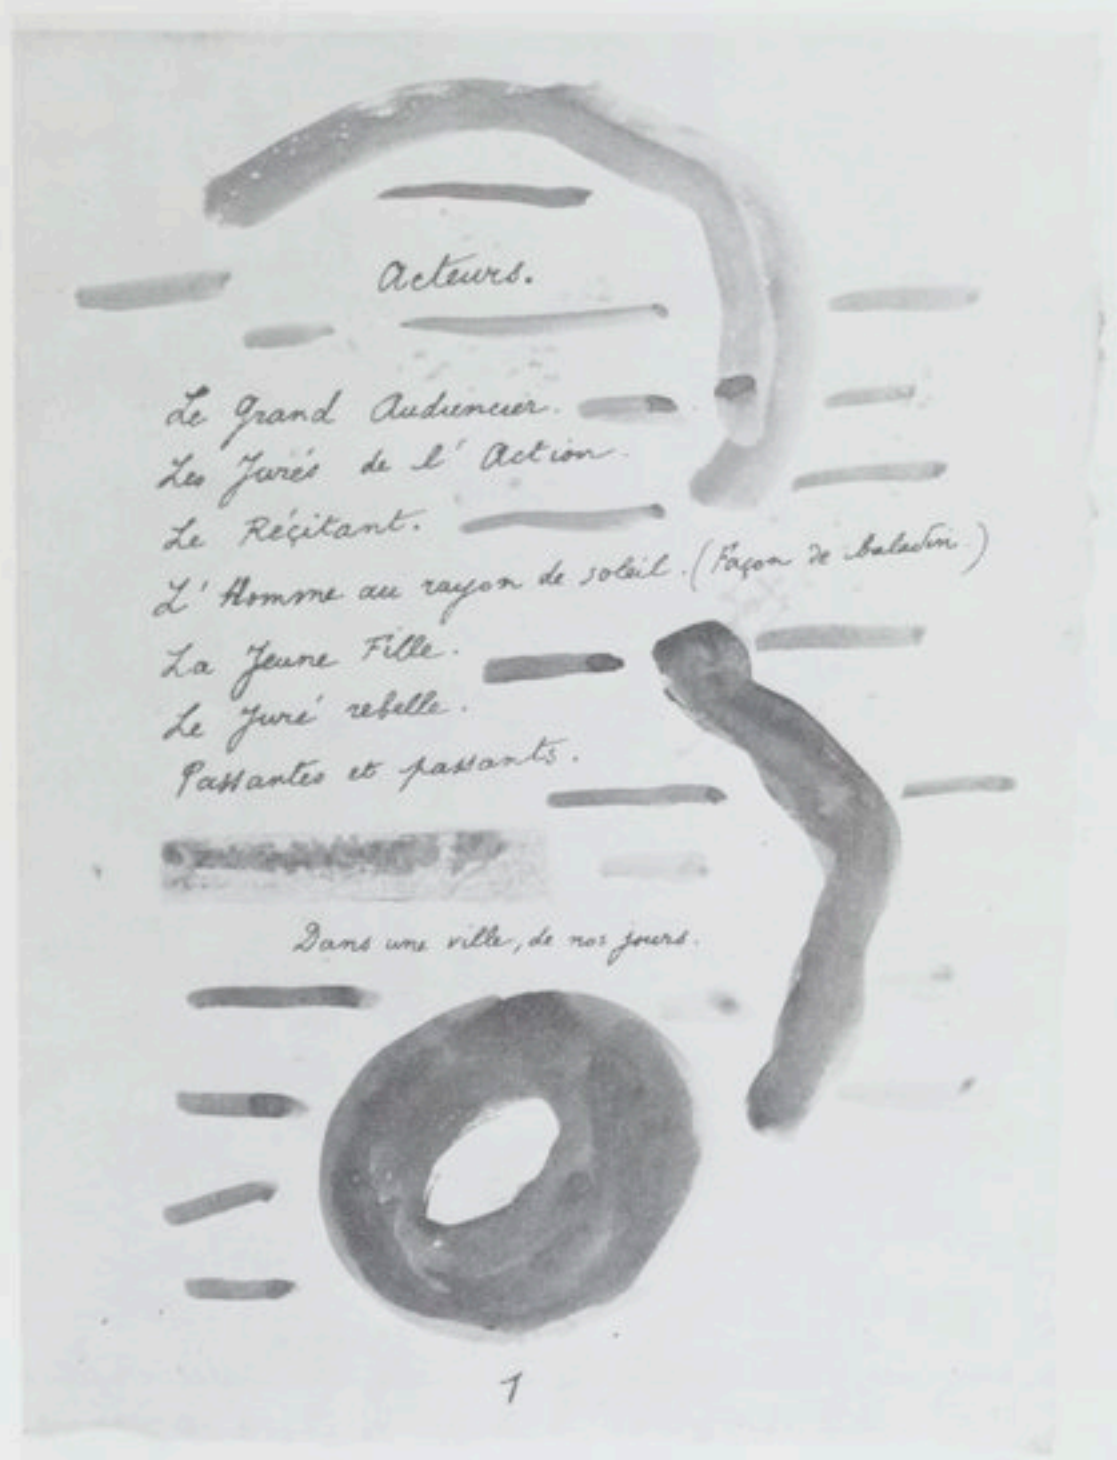 Acteurs.
Le Grand Audiencier.
Les Jurés de l' Action.
Le Réçitant.
L' Homme au rayon de soleil. (Façon de baladin.)
La Jeune Fille.
Le Juré rebelle.
Passantes et passants.
Dans une ville, de nos jours.
1